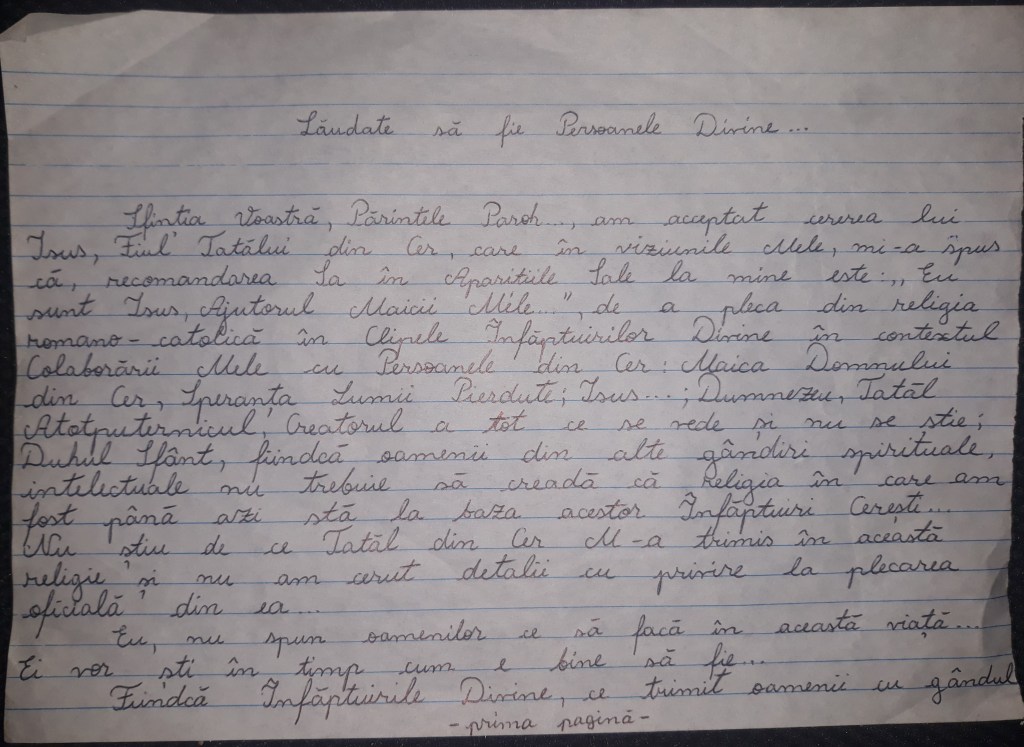 Lăudate să fie Persoanele Divine...
Sfinția Voastră, Părintele Paroh..., am acceptat cererea lui
Isus, Fiul Tatălui din Cer, care în viziunile Mele, mi-a spus
că, recomandarea Sa în Aparițiile Sale la mine este: „Eu
sunt Isus, Ajutorul Maicii Mele...", de a pleca din religia
romano-catolică în Clipele Înfăptuirilor Divine în contextul
Colaborării Mele cu Persoanele din Cer: Maica Domnului
din Cer, Speranța Lumii Pierdute; Isus...; Dumnezeu, Tatăl
Atotputernicul, Creatorul a tot ce se vede și nu se știe;
Duhul Sfânt, fiindcă oamenii din alte gândiri spirituale,
intelectuale nu trebuie să creadă că Religia în care am
fost până azi stă la baza acestor Înfăptuiri Cerești...
Nu știu de ce Tatăl din Cer M-a trimis în această
religie și nu am cerut detalii cu privire la plecarea
oficială din ea...
Eu, nu spun oamenilor ce să facă în această viață...
Ei vor ști în timp cum e bine să fie...
Fiindcă Înfăptuirile Divine, ce trimit oamenii cu gândul
-prima pagină-